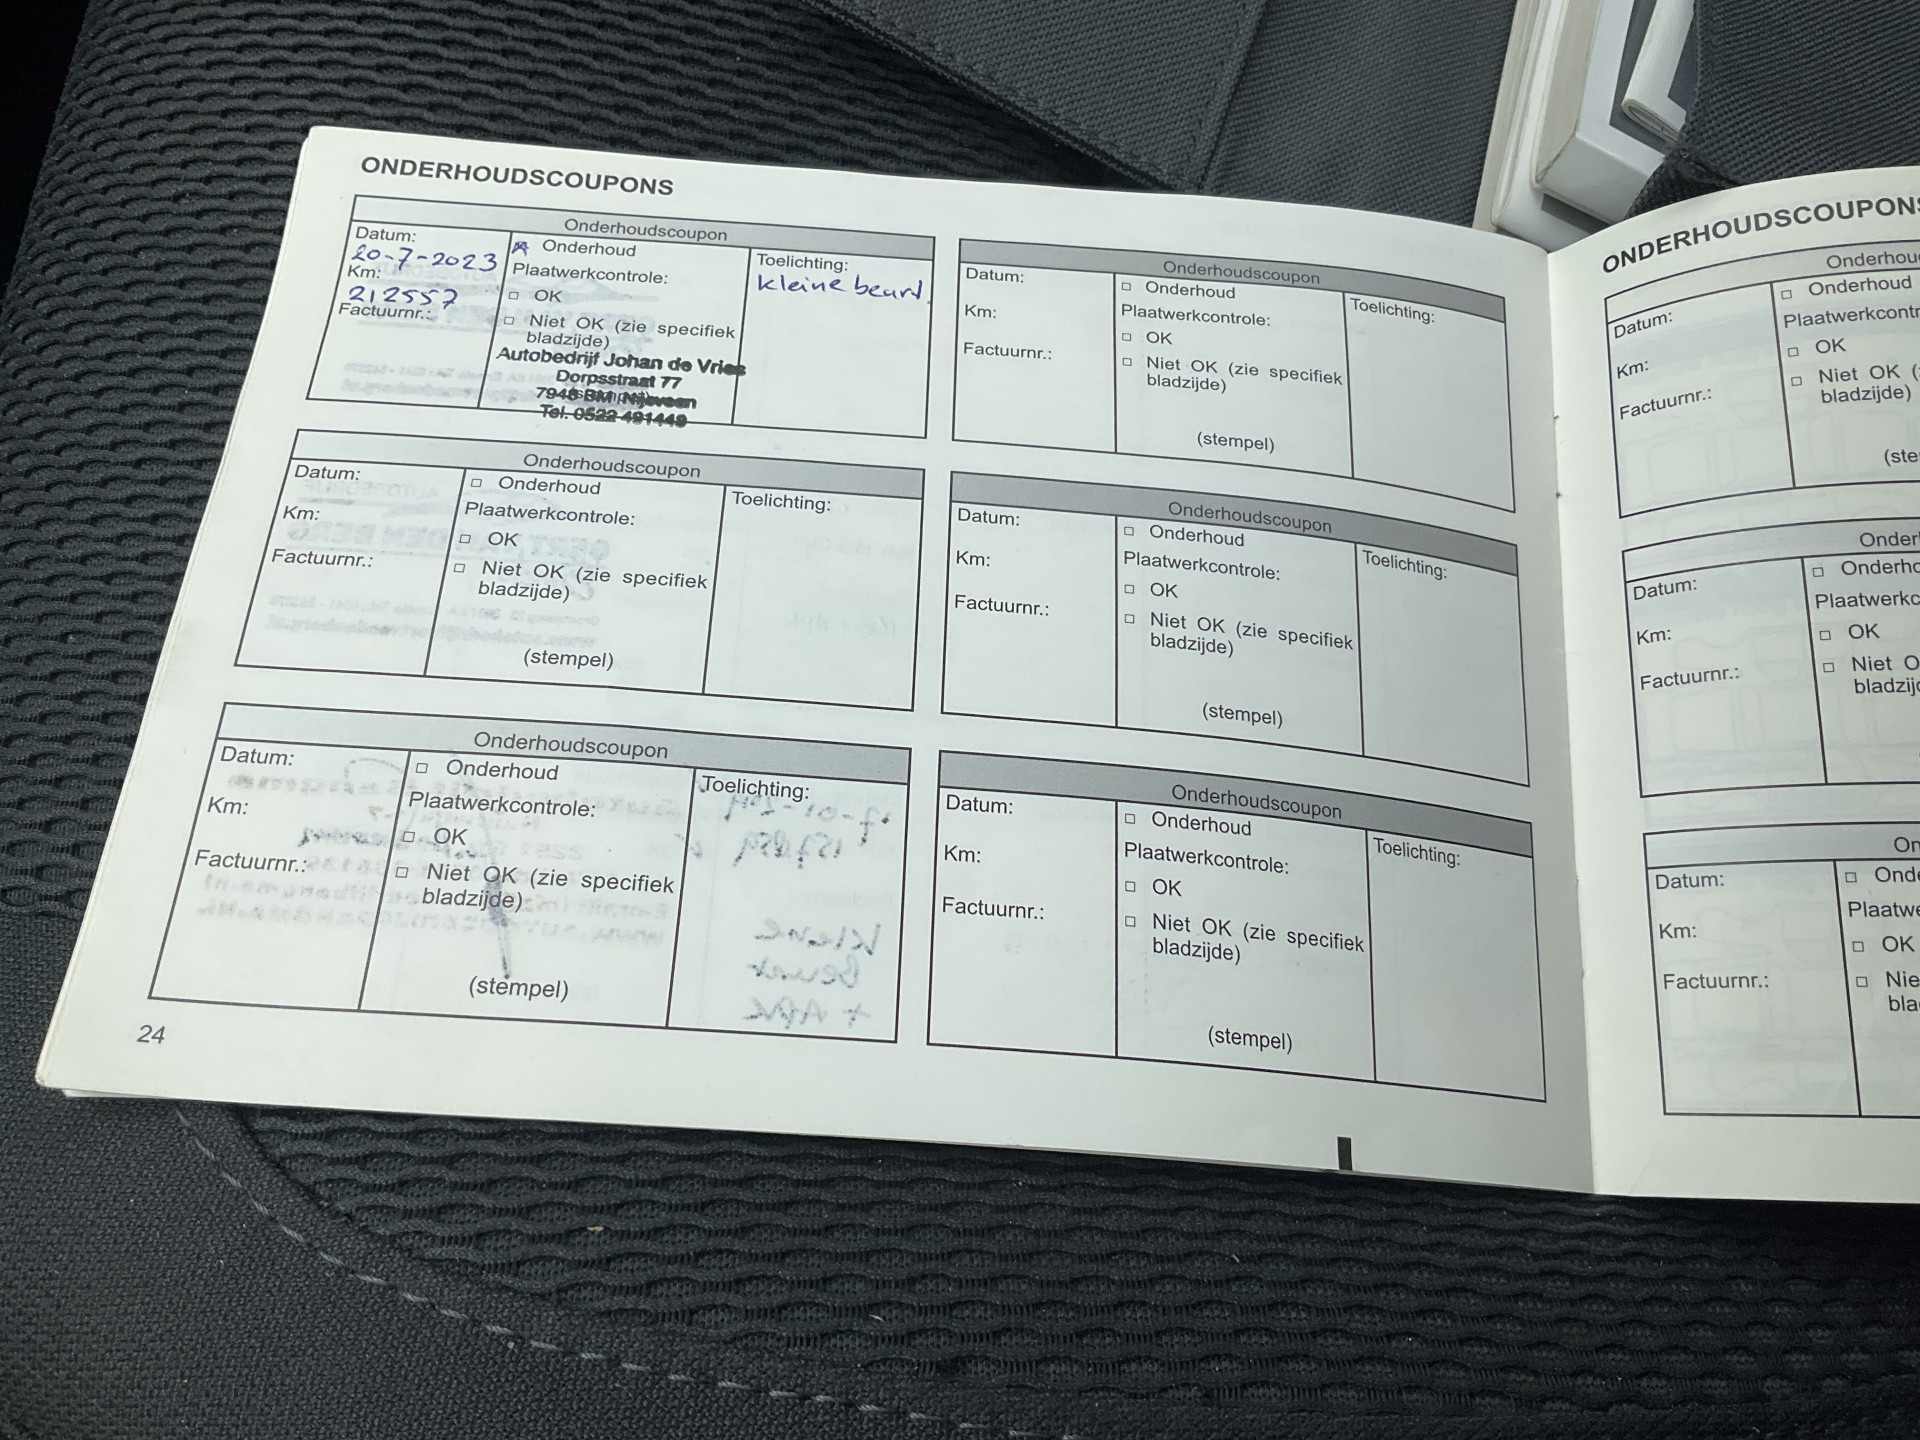 ONDERHOUDSCOUPONS
Onderhoudscoupon
Datum:
20-7-2023
Km:
212557
Factuurnr.:
Onderhoud
Plaatwerkcontrole:
OK
Niet OK (zie specifiek
bladzijde)
Autobedrijf Johan de Vries
Dorpsstraat 77
7948 BM Nijeveen
Tel. 0522-491449
Toelichting:
kleine beurt
Onderhoudscoupon
Datum:
Km:
Factuurnr.:
Onderhoud
Plaatwerkcontrole:
OK
Niet OK (zie specifiek
bladzijde)
(stempel)
Toelichting:
Onderhoudscoupon
Datum:
Km:
Factuurnr.:
Onderhoud
Plaatwerkcontrole:
OK
Niet OK (zie specifiek
bladzijde)
(stempel)
Toelichting:
Onderhoudscoupon
Datum:
Km:
Factuurnr.:
Onderhoud
Plaatwerkcontrole:
OK
Niet OK (zie specifiek
bladzijde)
(stempel)
Toelichting:
Onderhoudscoupon
Datum:
Km:
Factuurnr.:
Onderhoud
Plaatwerkcontrole:
OK
Niet OK (zie specifiek
bladzijde)
(stempel)
Toelichting:
Onderhoudscoupon
Datum:
Km:
Factuurnr.:
Onderhoud
Plaatwerkcontrole:
OK
Niet OK (zie specifiek
bladzijde)
(stempel)
Toelichting:
24
ONDERHOUDSCOUPONS
Onderhou
Datum:
Km:
Factuurnr.:
Onderhoud
Plaatwerkcontr
OK
Niet OK (
bladzijde)
(ste
Onder
Datum:
Km:
Factuurnr.:
Onderho
Plaatwerkc
OK
Niet O
bladzij
On
Datum:
Km:
Factuurnr.:
Onde
Plaatwe
OK
Nie
bla